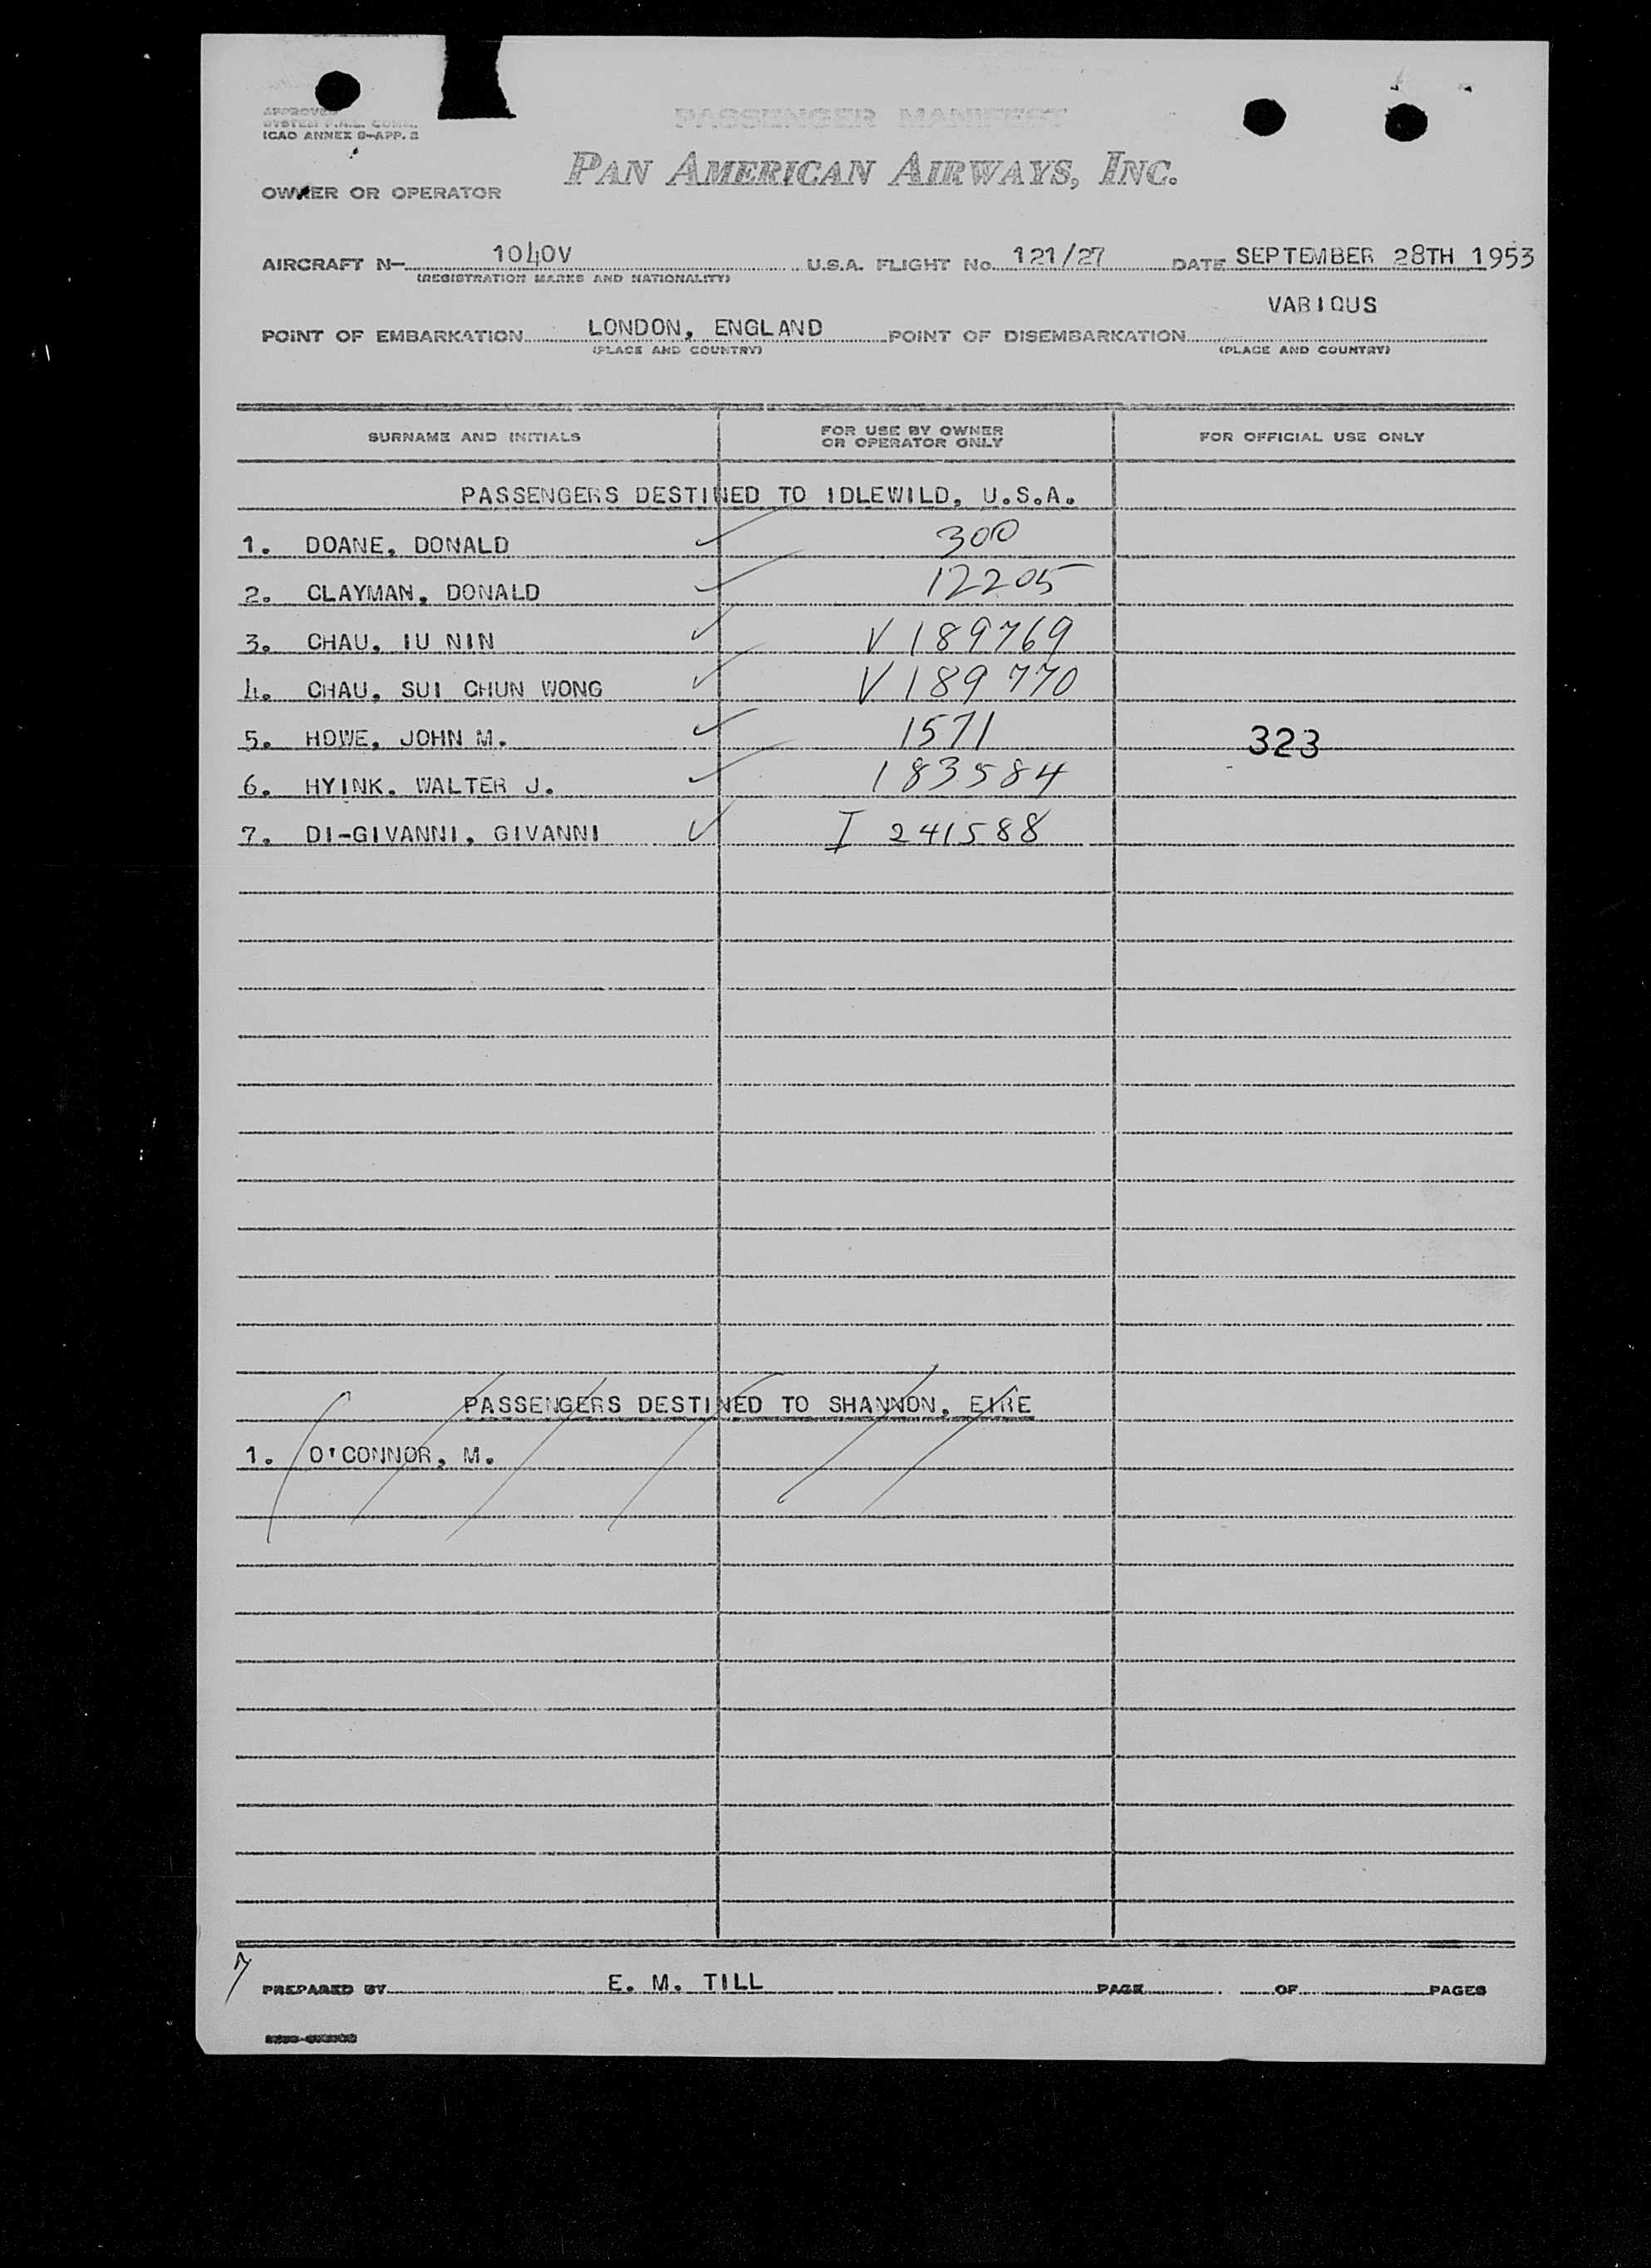 APPROVED
SYSTEM P.A.L. COMM.
ICAO ANNEX 9-APP. 2
PASSENGER MANIFEST
PAN AMERICAN AIRWAYS, INC.
OWNER OR OPERATOR
AIRCRAFT N- 1040V U.S.A. FLIGHT No. 121/27 DATE SEPTEMBER 28TH 1953
(REGISTRATION MARKS AND NATIONALITY)
VARIOUS
POINT OF EMBARKATION LONDON, ENGLAND POINT OF DISEMBARKATION
(PLACE AND COUNTRY) (PLACE AND COUNTRY)
SURNAME AND INITIALS FOR USE BY OWNER OR OPERATOR ONLY FOR OFFICIAL USE ONLY
PASSENGERS DESTINED TO IDLEWILD, U.S.A.
1. DOANE, DONALD ✓ 300
2. CLAYMAN, DONALD ✓ 12205
3. CHAU, IU NIN ✓ V 189769
4. CHAU, SUI CHUN WONG ✓ V 189770
5. HOWE, JOHN M. ✓ 1571 323
6. HYINK. WALTER J. ✓ 183584
7. DI-GIVANNI, GIVANNI ✓ I 241588
PASSENGERS DESTINED TO SHANNON, EIRE
1. O'CONNOR, M.
7
PREPARED BY E. M. TILL PAGE OF PAGES